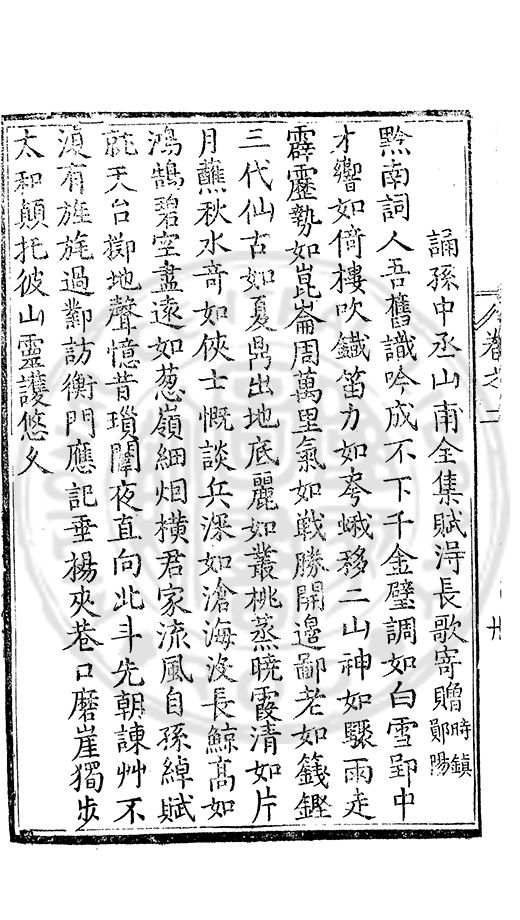 誦孫中丞山甫全集賦淂長歌寄贈時鎮鄖陽
黔南詞人吾舊識吟成不下千金璧調如白雪郢中
才響如倚樓吹鐡笛力如夸蛾移二山神如驟雨走
霹靂勢如崑崙周萬里氣如戦勝開邉鄙老如籛鏗
三代仙古如夏鼎出地底麗如叢桃蒸曉霞清如片
月蘸秋水竒如俠士慨談兵深如滄海沒長鯨髙如
鴻鵠碧空盡遠如葱嶺細烟橫君家流風自孫綽賦
就天台擲地聲憶昔瑣闈夜直向北斗先朝諫艸不
湏有旌旄過鄴訪衡門應記垂楊夾巷口磨崖獨步
太和顛托彼山靈護悠久
卷之二
卅